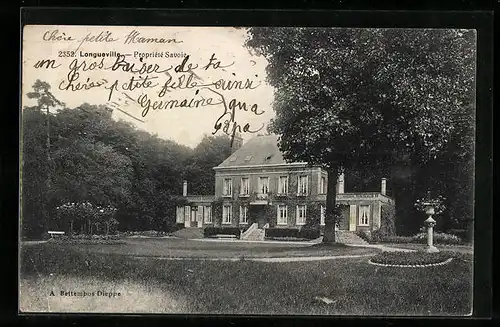 Chère petite Maman
2352. Longueville. — Propriété Savoie
un gros baiser de ta
Chère petite fille ainsi
Germaine que
papa
A. Bettembos Dieppe